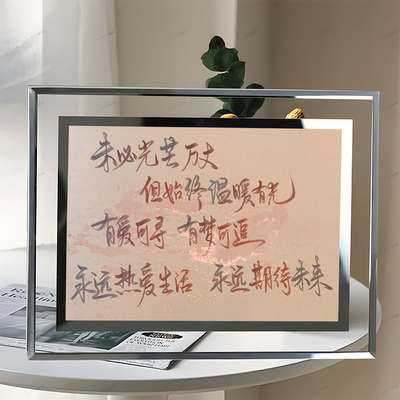 未必光芒万丈
但始终温暖有光
有爱可寻 有梦可追
永远热爱生活 永远期待未来
Headline